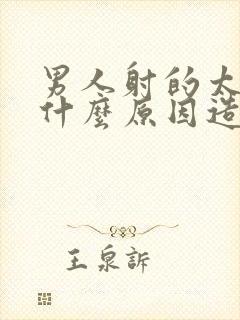 男人射的太
什麼原因造
王泉訴